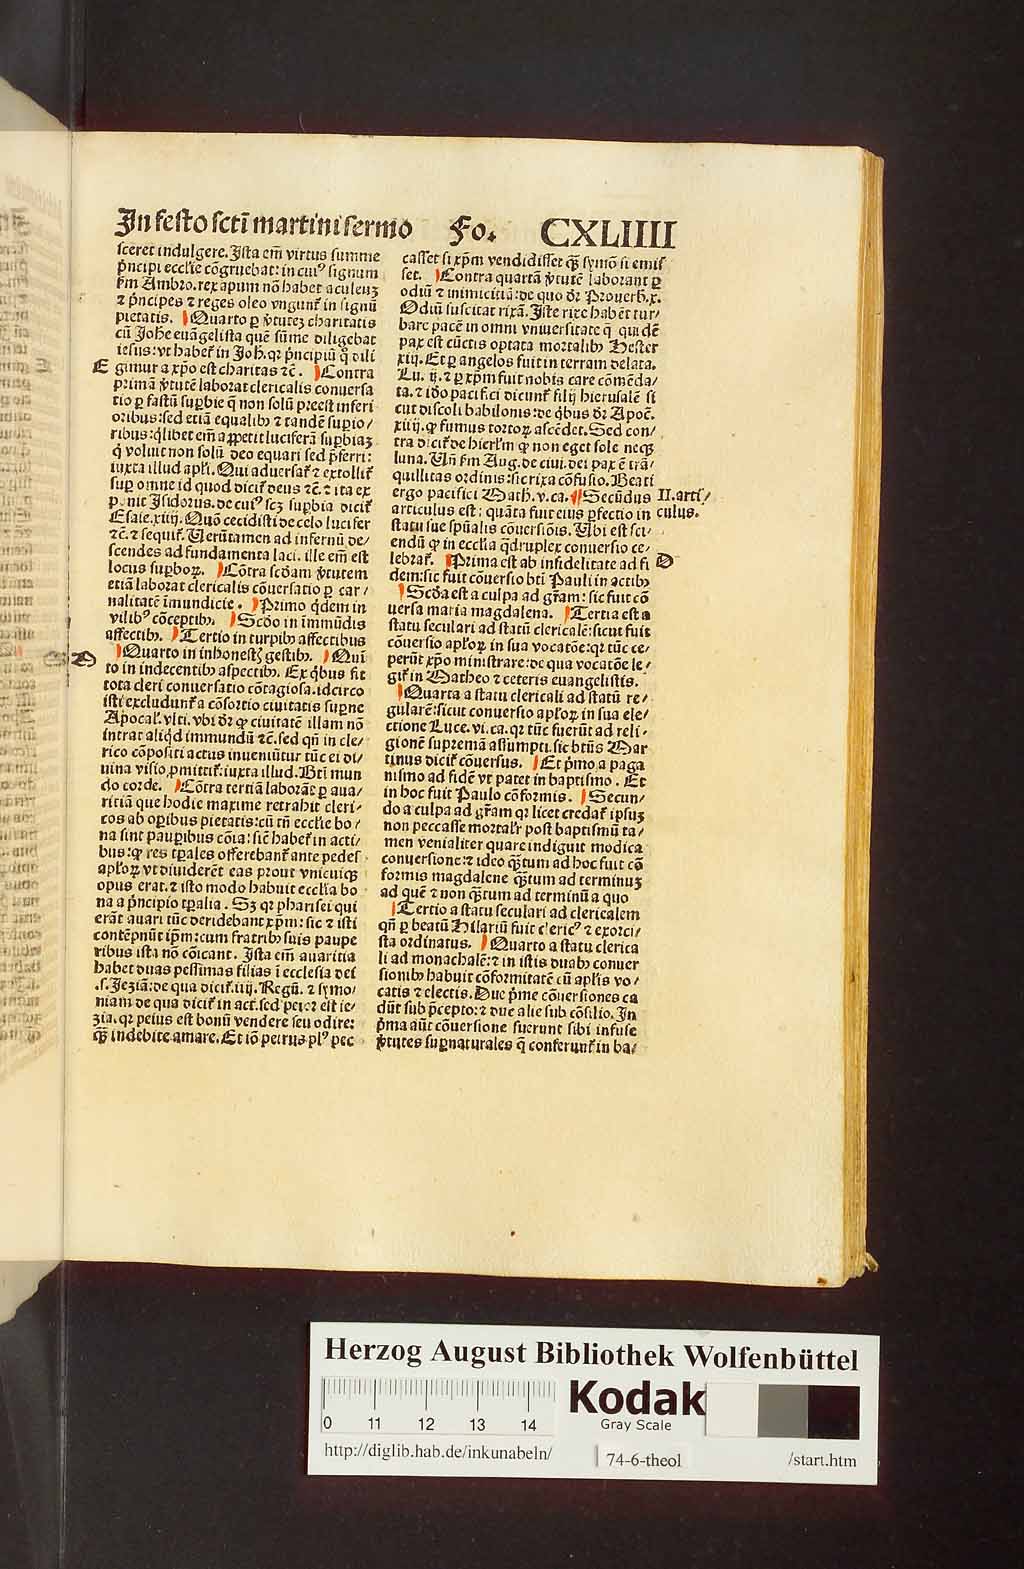 In festo scti martini sermo Fo. CXLIIII
sceret indulgere. Ista em̄ virtus summe
p̄ncipi ecclie cōgruebat: in cui⁹ signum
ẜm Ambro. rex apum nō habet aculeuꝫ
⁊ p̄ncipes ⁊ reges oleo vngunt̄ in signū
pietatis. Quarto ꝑ v̄tuteꝫ charitatis
cū Johe euāgelista quē sūme diligebat
iesus: vt habet̄ in Joh. qꝛ p̄ncipiū q̄ dili
E gimur a xp̄o est charitas ⁊c̄. Contra
primā v̄tutē laborat clericalis conuersa
tio ꝑ fastū suꝑbie q̄ non solū preest inferi
oribus: sed etiā equalibꝰ ⁊ tandē suꝑio/
ribus: q̄libet em̄ appetit luciferā suꝑbiaꝫ
q̇ voluit non solū deo equari sed p̄ferri:
iuxta illud apli. Qui aduersat̄ ⁊ extollit̄
suꝑ omne id quod dicit̄ deus ⁊c̄. ⁊ ita ex
ponit Isidorus. de cui⁹ scꝫ suꝑbia dicit̄
Esaie. xiiij. Quō cecidisti de celo lucifer
⁊c̄. ⁊ sequit̄. Uerūtamen ad infernū de/
scendes ad fundamenta laci. ille em̄ est
locus suꝑboꝝ. Cōtra scdam v̄tutem
etiā laborat clericalis cōuersatio ꝑ car/
nalitatē īmundicie. Primo q̇dem in
vilib⁹ cōceptibꝰ. Scdo in īmūdis
affectibꝰ. Tertio in turpibꝰ affectibus
Quarto in inhonestꝭ gestibꝰ. Quī
to in indecentibꝰ aspectibꝰ. Ex q̇bus fit
tota cleri conuersatio cōtagiosa. idcirco
isti excludunt̄ a cōsortio ciuitatis suꝑne
Apocal̄. vlti. vbi dr̄ ꝙ ciuitatē illam nō
intrat aliq̇d immundū ⁊c̄. sed qn̄ in cle/
rico cōpositi actus inueniūtur tūc ei di/
uina visio ꝓmittit̄: iuxta illud. Bt̄i mun
do corde. Cōtra tertiā laborāt ꝑ aua/
ritiā que hodie maxime retrahit cleri/
cos ab oꝑibus pietatis: cū tn̄ ecclie bo/
na sint pauꝑibus cōia: sic̄ habet̄ in acti/
bus: ꝙ res tꝑales offerebant̄ ante pedes
aploꝝ vt diuiderēt eas prout vnicuiqꝫ
opus erat. ⁊ isto modo habuit ecclia bo
na a p̄ncipio tꝑalia. Sꝫ qꝛ pharisei qui
erāt auari tūc deridebant xp̄m: sic ⁊ isti
contēpnūt ip̄m: cum fratribꝰ suis paupe
ribus ista nō cōicant. Ista em̄ auaritia
habet duas pessimas filias ī ecclesia dei
.s. Jeziā: de qua dicit̄. iiij. Regū. ⁊ symo/
niam de qua dicit̄ in act. sed peior est ie/
zia. qꝛ peius est bonū vendere seu odire:
qͣꝫ indebite amare. Et iō petrus pl⁹ pec
casset si xp̄m vendidisset qͣꝫ symō si emis
set. Contra quartā v̄tutē laborant ꝑ
odiū ⁊ inimicitiā: de quo dr̄ Prouerb. x.
Odiū suscitat rixā. Iste rixe habēt tur/
bare pacē in omni vniuersitate q̄ quidē
pax est cūctis optata mortalibꝰ Hester
xiij. Et ꝑ angelos fuit in terram delata.
Lu. ij. ⁊ ꝑ xp̄m fuit nobis care cōmēda/
ta. ⁊ iō pacifici dicunt̄ filij hierusalē si
cut discoli babilonis: de q̇bus dr̄ Apoc̄.
xiiij. ꝙ fumus tortoꝝ ascēdet. Sed con/
tra dicit̄ de hierlm̄ ꝙ non eget sole neqꝫ
luna. Un̄ ẜm Aug. de ciui. dei pax ē trā/
quillitas ordinis: sic rixa cōfusio. Beati
ergo pacifici Math. v. ca. Secūdus
articulus est: quāta fuit eius ꝑfectio in
II. arti/
culus.
statu sue spūalis cōuersiōis. Ubi est sci/
endū ꝙ in ecclia q̄druplex conuersio ce/
lebrat̄. Prima est ab infidelitate ad fi
D
dem: sic fuit cōuersio bt̄i Pauli in actibꝰ
Scda est a culpa ad gr̄am: sic fuit cō
uersa maria magdalena. Tertia est a
statu seculari ad statū clericalē: sicut fuit
cōuersio aploꝝ in sua vocatōe: qꝛ tūc ce/
perūt xp̄o ministrare: de qua vocatōe le/
git̄ in Matheo ⁊ ceteris euangelistis.
Quarta a statu clericali ad statū re/
gularē: sicut conuersio aploꝝ in sua ele/
ctione Luce. vi. ca. qꝛ tūc fuerūt ad reli/
gionē supremā assumpti. sic bt̄us Mar
tinus dicit̄ cōuersus. Et p̄mo a paga
nismo ad fidē vt patet in baptismo. Et
in hoc fuit Paulo cōformis. Secun/
do a culpa ad gr̄am qꝛ licet credat̄ ipsuꝫ
non peccasse mortalr̄ post baptismū ta/
men venialiter quare indiguit modica
conuersione: ⁊ ideo qͣꝫtum ad hoc fuit cō
formis magdalene qͣꝫtum ad terminuꝫ
ad quē ⁊ non qͣꝫtum ad terminū a quo
Tertio a statu seculari ad clericalem
qn̄ ꝑ beatū Hilariū fuit cleric⁹ ⁊ exorci/
sta ordinatus. Quarto a statu clerica
li ad monachalē: ⁊ in istis duabꝰ conuer
sionibꝰ habuit cōformitatē cū aplis vo/
catis ⁊ electis. Due p̄me cōuersiones ca
dūt sub p̄cepto: ⁊ due alie sub cōsilio. In
p̄ma aūt cōuersione fuerunt sibi infuse
v̄tutes suꝑnaturales q̄ conferunt̄ in ba/
Herzog August Bibliothek Wolfenbüttel
0 11 12 13 14
Kodak
Gray Scale
http://diglib.hab.de/inkunabeln/ 74-6-theol /start.htm